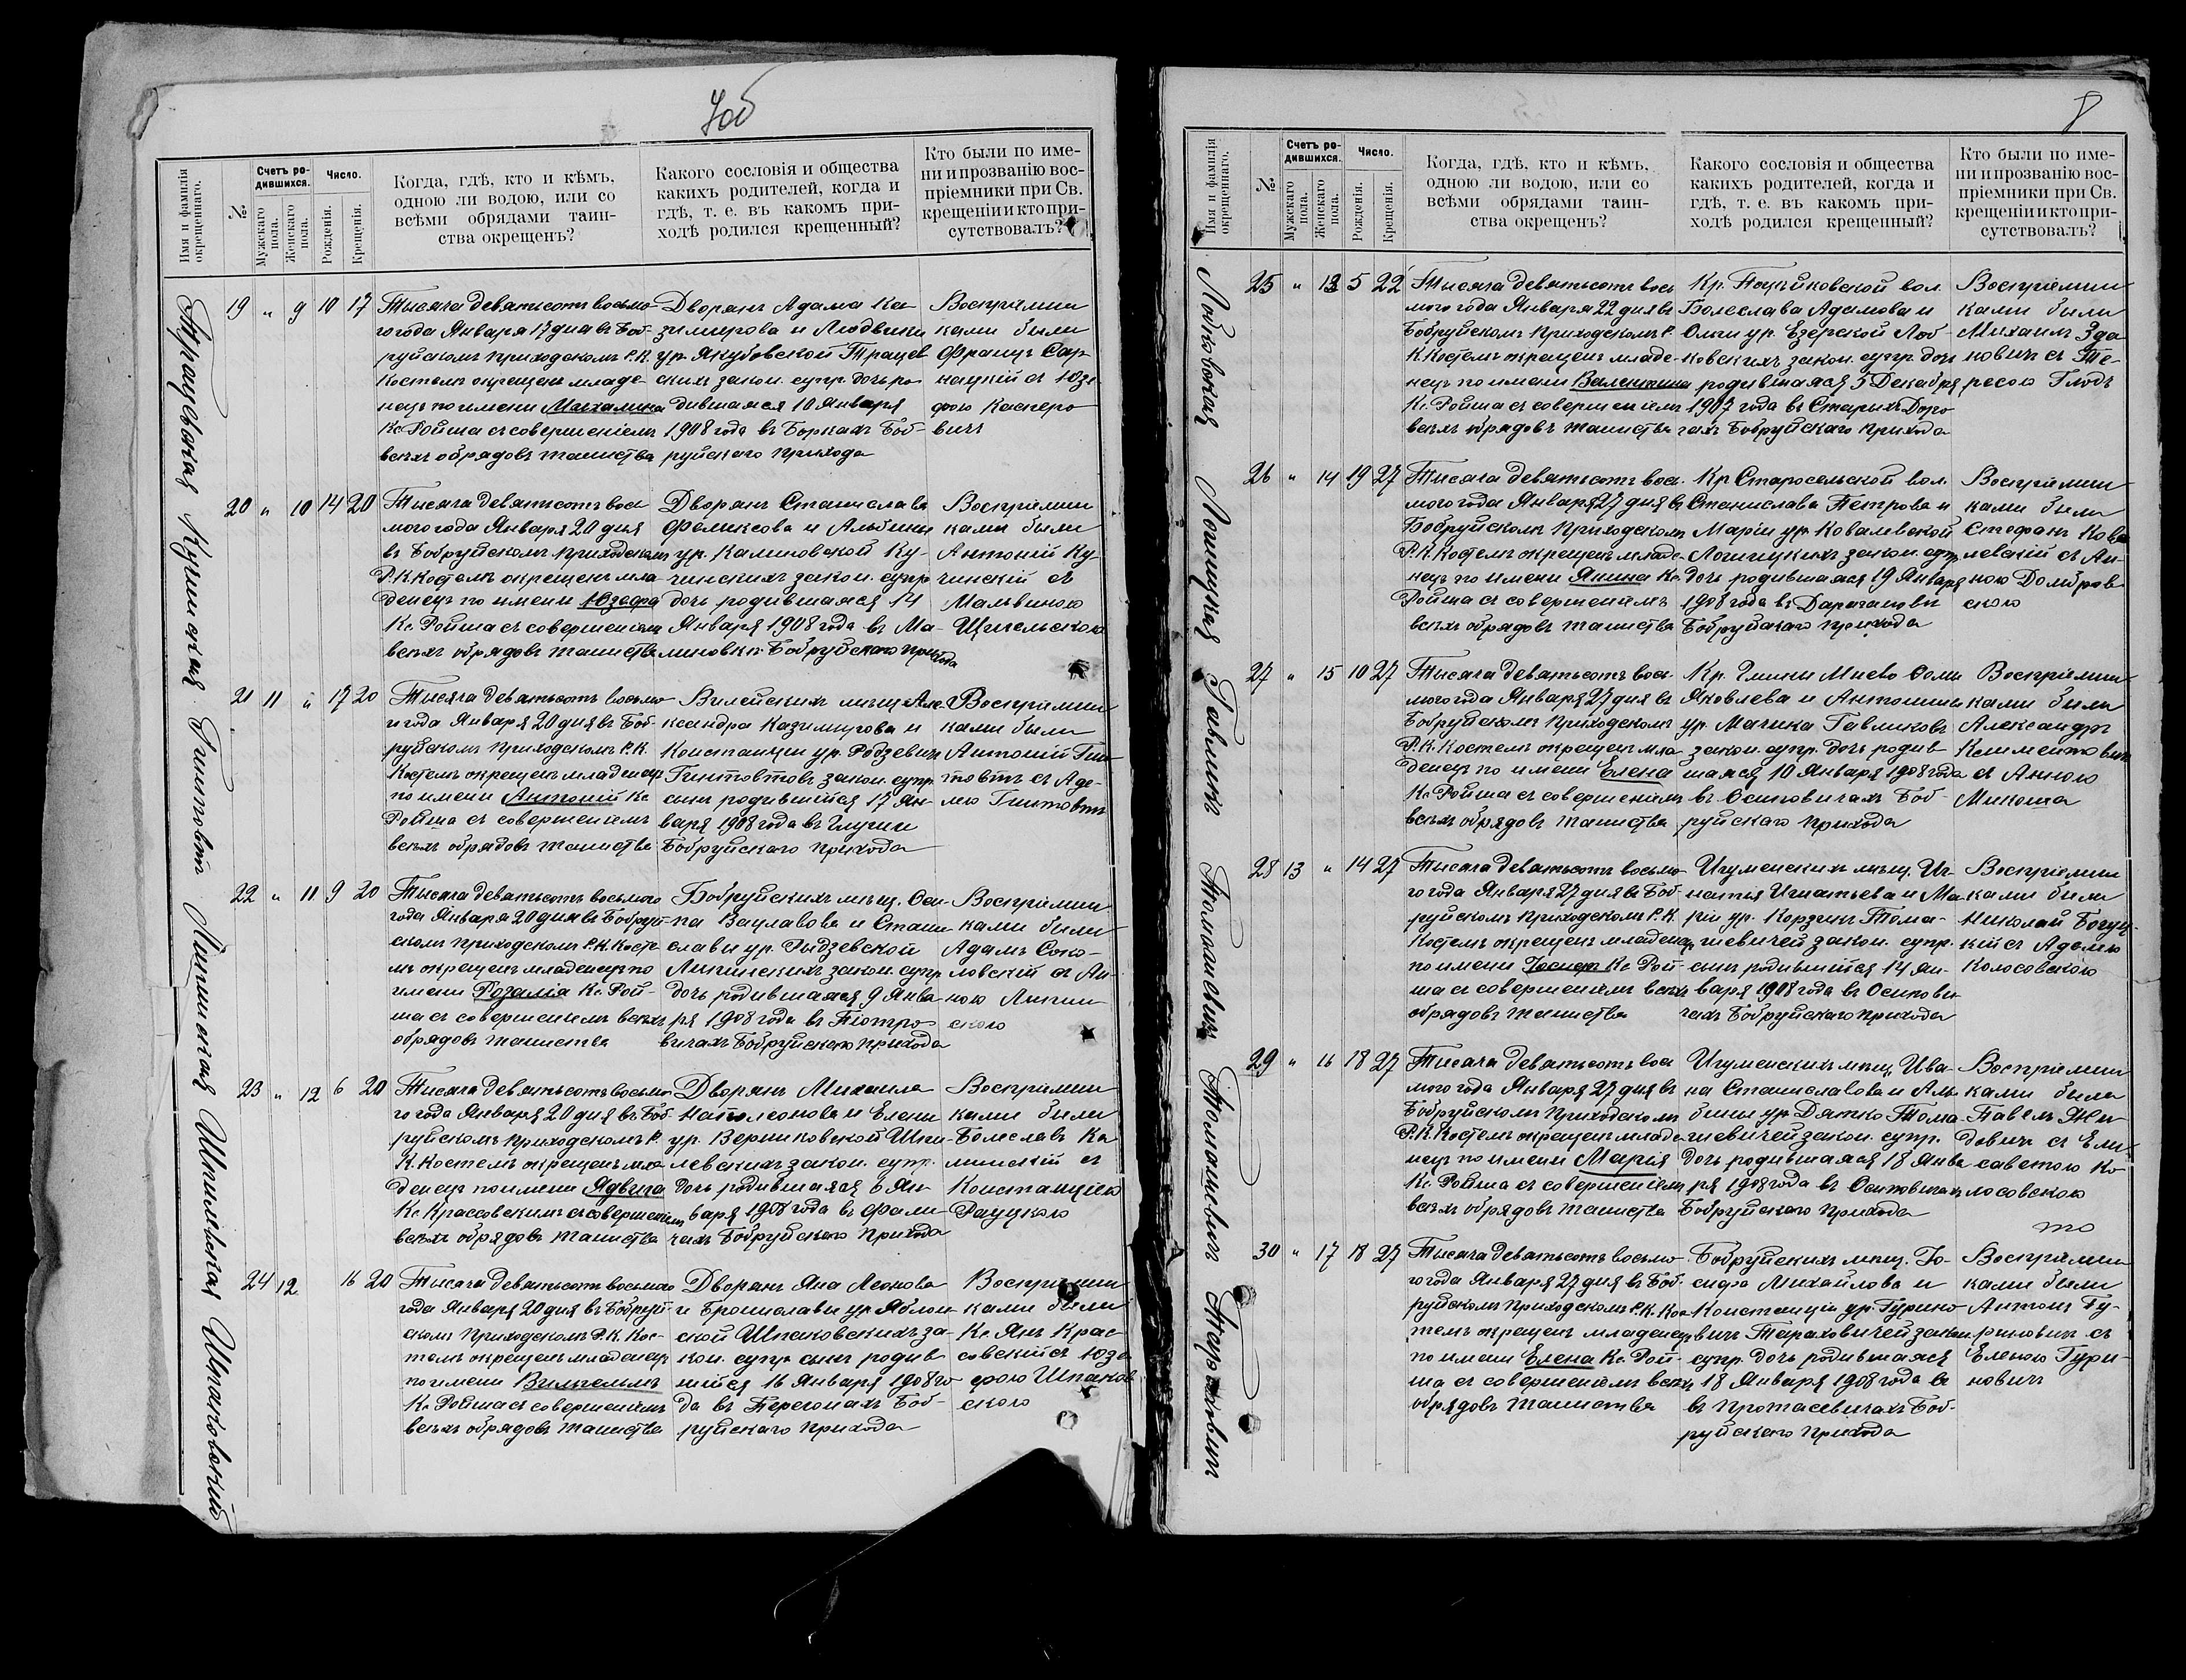 7об
Имя и фамилія окрещеннаго.
№
Счетъ родившихся.
Мужскаго пола.
Женскаго пола.
Число.
Рожденія.
Крещенія.
Когда, гдѣ, кто и кѣмъ,
одною ли водою, или со
всѣми обрядами таин-
ства окрещенъ?
Какого сословія и общества
какихъ родителей, когда и
гдѣ, т. е. въ какомъ при-
ходѣ родился крещенный?
Кто были по име-
ни и прозванію вос-
пріемники при Св.
крещеніи и кто при-
сутствовалъ?
Трацевская
19 " 9 10 17
Тысяча девятьсотъ восьмо-
го года Января 17 дня въ Боб-
руйскомъ приходскомъ Р.К.
костелѣ окрещенъ младе-
нецъ по имени Михалина
Кс. Ройша съ совершеніемъ
всѣхъ обрядовъ таинства
Дворянъ Адама Ка-
зимирова и Людвики
ур. Якубовской Трацев
скихъ закон. супр. дочь ро
дившаяся 10 Января
1908 года въ Боркахъ Боб-
руйскаго прихода
Воспріемни
ками были
Францъ Сар-
нацкій съ Юзе
фою Касперо
вичъ
Кучинская
20 " 10 14 20
Тысяча девятьсотъ вось
мого года Января 20 дня
въ Бобруйскомъ приходскомъ
Р.К. Костелѣ окрещенъ мла
денецъ по имени Юзефа
Кс. Ройша съ совершеніемъ
всѣхъ обрядовъ таинства
Дворянъ Станислава
Феликсова и Альбины
ур. Калиновской Ку-
чинскихъ закон. супр
дочь родившаяся 14
Января 1908 года въ Ма-
линовкѣ Бобруйскаго прихода
Воспріемни
ками были
Антоній Ку
чинскій съ
Мальвиною
Гинтовтъ
21 11 " 17 20
Тысяча девятьсотъ восьмо
го года Января 20 дня въ Боб-
руйскомъ приходскомъ Р.К.
Костелѣ окрещенъ младенецъ
по имени Антоній Кс
Ройша съ совершеніемъ
всѣхъ обрядовъ таинства
Вилейскихъ мѣщ. Але-
ксандра Казимирова и
Констанціи ур. Родзевичъ
Гинтовтовъ закон. супр.
сынъ родившійся 17 Ян-
варя 1908 года въ Глуши
Бобруйскаго прихода
Воспріемни
ками были
Антоній Гин
товтъ съ Аде-
лею Гинтовтъ
Липинская
22 " 11 9 20
Тысяча девятьсотъ восьмого
года Января 20 дня въ Бобруй-
скомъ приходскомъ Р.К. Косте
лѣ окрещенъ младенецъ по
имени Розалія Кс. Рой-
ша съ совершеніемъ всѣхъ
обрядовъ таинства
Бобруйскихъ мѣщ. Оси-
па Вацлавова и Стани
славы ур. Рыдзевской
Липинскихъ закон. супр
дочь родившаяся 9 Янва-
ря 1908 года въ Піотро-
вичахъ Бобруйскаго прихода
Воспріемни
ками были
Адамъ Соко-
ловскій съ Ан-
ною Липин
скою
Шпилевская
23 " 12 6 20
Тысяча девятьсотъ восьмо
го года Января 20 дня въ Боб-
руйскомъ приходскомъ Р.
К. Костелѣ окрещенъ мла
денецъ по имени Ядвига
Кс Крассовскимъ съ совершеніемъ
всѣхъ обрядовъ таинства
Дворянъ Михаила
Наполеонова и Елены
ур. Верниковской Шпи-
левскихъ закон. супр.
дочь родившаяся 6 Ян-
варя 1908 года въ Фали
чахъ Бобруйскаго прихода
Воспріемни
ками были
Болеславъ Ка
минскій съ
Констанціею
Рауцкою
Шпаковскій
24 12 16 20
Тысяча девятьсотъ восьмого
года Января 20 дня въ Бобруй-
скомъ приходскомъ Р.К. Кос-
телѣ окрещенъ младенецъ
по имени Вильгельмъ
Кс Ройша съ совершеніемъ
всѣхъ обрядовъ таинства
Дворянъ Яна Леонова
и Брониславы ур Яблон-
ской Шпаковскихъ за-
кон. супр сынъ родив
шійся 16 Января 1908 го
да въ Перегонахъ Боб-
руйскаго прихода
Воспріемни
ками были
Кс. Янъ Крас-
совскій съ Юзе
фою Шпаков
скою
8
Имя и фамилія окрещеннаго.
№
Счетъ родившихся.
Мужскаго пола.
Женскаго пола.
Число.
Рожденія.
Крещенія.
Когда, гдѣ, кто и кѣмъ,
одною ли водою, или со
всѣми обрядами таин-
ства окрещенъ?
Какого сословія и общества
какихъ родителей, когда и
гдѣ, т. е. въ какомъ при-
ходѣ родился крещенный?
Кто были по име-
ни и прозванію вос-
пріемники при Св.
крещеніи и кто при-
сутствовалъ?
Лобковская
25 " 13 5 22
Тысяча девятьсотъ вось
мого года Января 22 дня въ
Бобруйскомъ приходскомъ Р.
К. Костелѣ окрещенъ младе-
нецъ по имени Валентина
Кс. Ройша съ совершеніемъ
всѣхъ обрядовъ таинства
Болеслава Адамова и
Ольги ур. Езерской Лоб-
ковскихъ закон. супр. дочь
родившаяся 5 Декабря
1907 года въ Старыхъ Доро
гахъ Бобруйскаго прихода
Воспріемни
ками были
Михаилъ Зда
новичъ съ Те-
ресою Глодъ
26 " 14 19 27
Тысяча девятьсотъ вось.
мого года Января 27 дня въ
Бобруйскомъ приходскомъ
Р.К. Костелѣ окрещенъ младе
нецъ по имени Янина Кс
Ройша съ совершеніемъ
всѣхъ обрядовъ таинства
Кр Старосельской вол.
Станислава Петрова и
Маріи ур. Ковалевской
закон. супр
дочь родившаяся 19 Января
1908 года въ Дараганови
Бобруйскаго прихода
Воспріемни
ками были
Стефанъ Кова
левскій съ Ан-
ною Домбров
скою
Гавликъ
27 " 15 10 27
Тысяча девятьсотъ вось.
мого года Января 27 дня въ
Бобруйскомъ приходскомъ
Р.К. Костелѣ окрещенъ мла
денецъ по имени Елена
Кс Ройша съ совершеніемъ
всѣхъ обрядовъ таинства
Яковлева и Антонины
Гавликовъ
закон. супр. дочь родив
шаяся 10 Января 1908 года
въ Осиповичахъ Боб-
руйскаго прихода
Воспріемни
ками были
Александръ
Климентовичъ
съ Анною
Микоша
Томашевичъ
28 13 " 14 27
Тысяча девятьсотъ восьмо-
го года Января 27 дня въ Боб-
руйскомъ приходскомъ Р.К.
Костелѣ окрещенъ младенецъ
по имени Іосифъ Кс Рой-
ша съ совершеніемъ всѣхъ
обрядовъ таинства
Игуменскихъ мѣщ. Иг-
натія Игнатьева и Ма-
ріи ур. Корзунъ Тома-
шевичей закон. супр.
сынъ родившійся 14 Ян-
варя 1908 года въ Осипови
чахъ Бобруйскаго прихода
Воспріемни
ками были
Николай Богуц-
кій съ Аделею
Колосовскою
Томашевичъ
29 " 16 18 27
Тысяча девятьсотъ вось
мого года Января 27 дня въ
Бобруйскомъ приходскомъ
Р.К. Костелѣ окрещенъ младе
нецъ по имени Марія
Кс. Ройша съ совершеніемъ
всѣхъ обрядовъ таинства
Игуменскихъ мѣщ. Ива-
на Станиславова и Аль
бины ур Дятко Тома-
шевичей закон. супр.
дочь родившаяся 18 Янва
ря 1908 года въ Осиповичахъ
Бобруйскаго прихода
Воспріемни
ками были
Павелъ
съ Ели-
саветою Ко
лосовскою
Тараховичъ
30 " 17 18 27
Тысяча девятьсотъ восьмо-
го года Января 27 дня въ Боб.
руйскомъ приходскомъ Р.К. Кос
телѣ окрещенъ младенецъ
по имени Елена Кс. Рой-
ша съ совершеніемъ всѣхъ
обрядовъ таинства
Бобруйскихъ мѣщ. Іо-
сифа Михайлова и
Констанціи ур. Гурино
вичъ Тараховичей закон.
супр. дочь родившаяся
18 Января 1908 года въ
въ Протасевичахъ Боб-
руйскаго прихода
Воспріемни
ками были
Антонъ Гу-
риновичъ съ
Еленою Гури-
новичъ